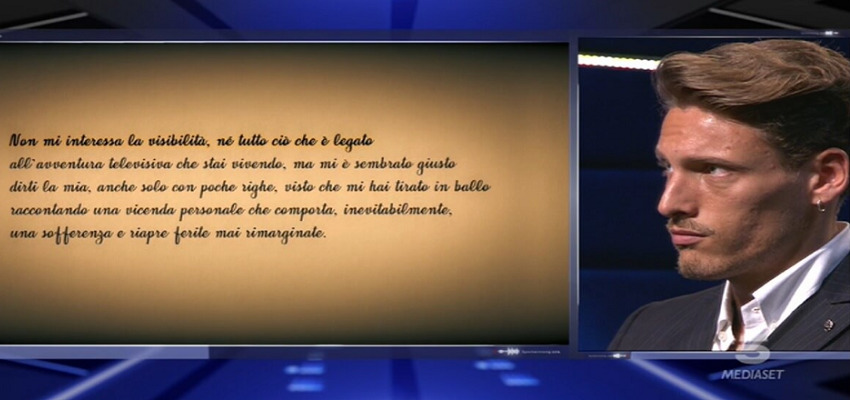 Non mi interessa la visibilità, né tutto ciò che è legato
all'avventura televisiva che stai vivendo, ma mi è sembrato giusto
dirti la mia, anche solo con poche righe, visto che mi hai tirato in ballo
raccontando una vicenda personale che comporta, inevitabilmente,
una sofferenza e riapre ferite mai rimarginate.
5
MEDIASET